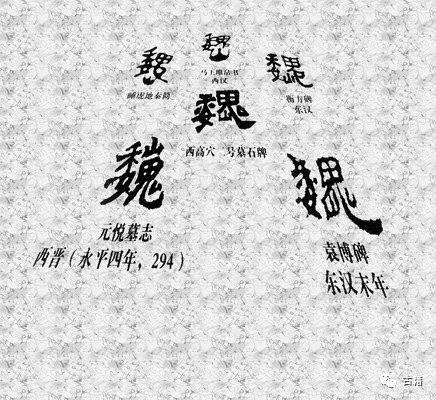 魏
魏
马王堆帛书
西汉
魏
睡虎地秦简
衡方碑
东汉
魏
西高穴二号墓石牌
魏
元悦墓志
西晋（永平四年，294）
魏
袁博碑
东汉末年